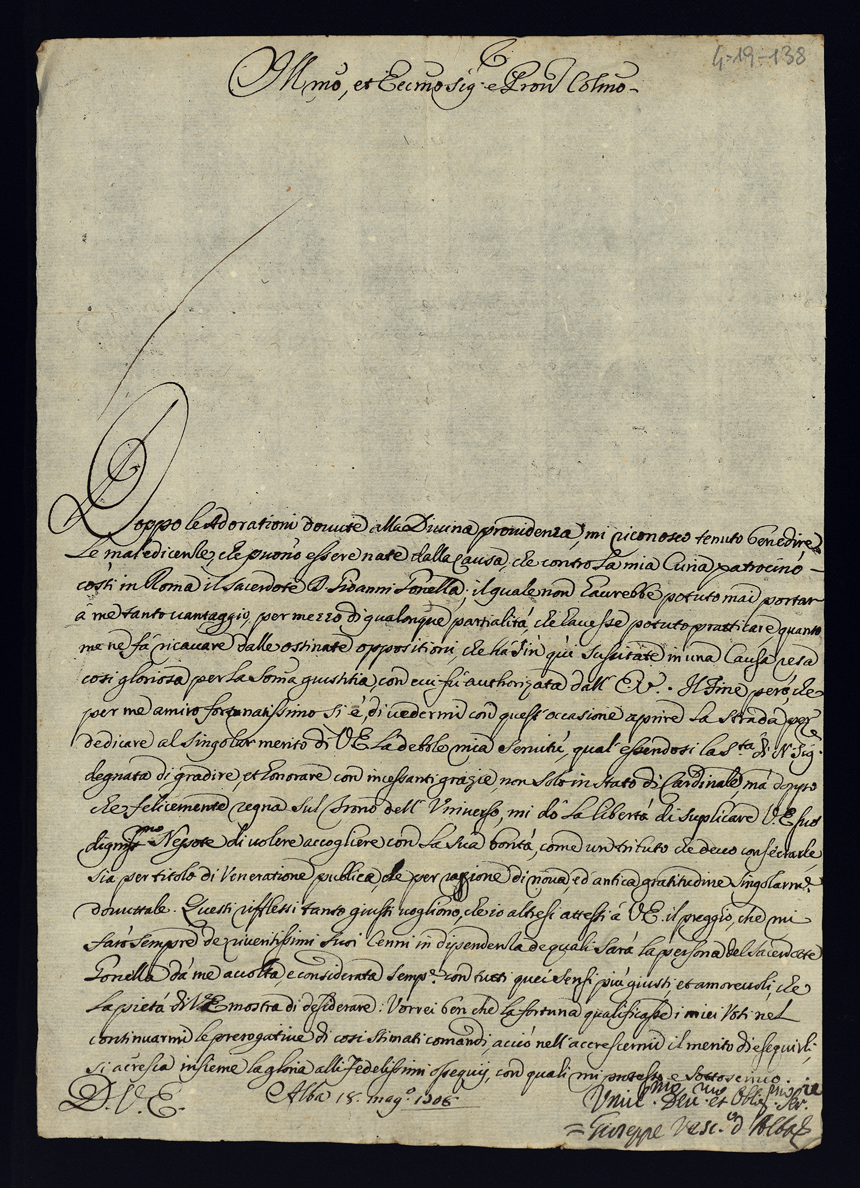 4-19-138
Ill.mo, et Ecc.mo Sig.e Pron Colmo-
Doppo le Adorationi dovute alla Divina providenza, mi riconosco tenuto benedire
Le maledicenze, che puono essere nate dalla causa, che contro la mia Curia patrocinò -
costì in Roma il Sacerdote D. Gioanni Gonella; il quale non haurebbe potuto mai portar
à me tanto vantaggio, per mezzo di qualonque partialità, che havesse potuto pratticare quanto
me ne fà ricavare dalle ostinate oppositioni, che hà sin qui suscitate in una Causa resa
così gloriosa per la somma giustitia, con cui fù authorizata dall' E.V. . Il Fine però, che
per me amiro fortunatissimo si è, di vedermi con quest'occasione aprire la strada per
dedicare al singolar merito di V.E. la debole mia Servitù, qual essendosi la S.tà di N. Sig.e
degnata di gradire, et honorare con incessanti grazie, non solo in stato di Cardinale, mà doppo
che felicemente regna sul Trono dell' Universo, mi dò la libertà di suplicare V.E. suo
dignis.mo Nepote di volere accogliere con la sua bontà, come un tributo che devo consecrarle
sia per titolo di Veneratione publica, che per ragione di nova, ed antica gratitudine singolarm.e
dovuttale. Questi riflessi tanto giusti vogliono, che io altresì attesti à V.E. il preggio, che mi
farò sempre de riverentissimi suoi Cenni in dipendenza de quali sarà la persona del Sacerdote
Gonella dà me accolta, e considerata semp.e con tutti quei sensi più giusti, et amorevoli, che
la pietà di V.E. mostra di desiderare. Vorrei ben che la fortuna qualificasse i miei Voti nel
continuarmi le prerogative di così stimati comandi, acciò nell'accrescermi il merito di eseguirli,
si acresca insieme la gloria alli fedelissimi ossequij, con quali mi protesto, e sottoscrivo.
D. V. E. Alba 15. mag.o 1706
Umil.mo Dev.mo et Oblig.mo Ser.re
= Giuseppe Vesc.o d'Alba